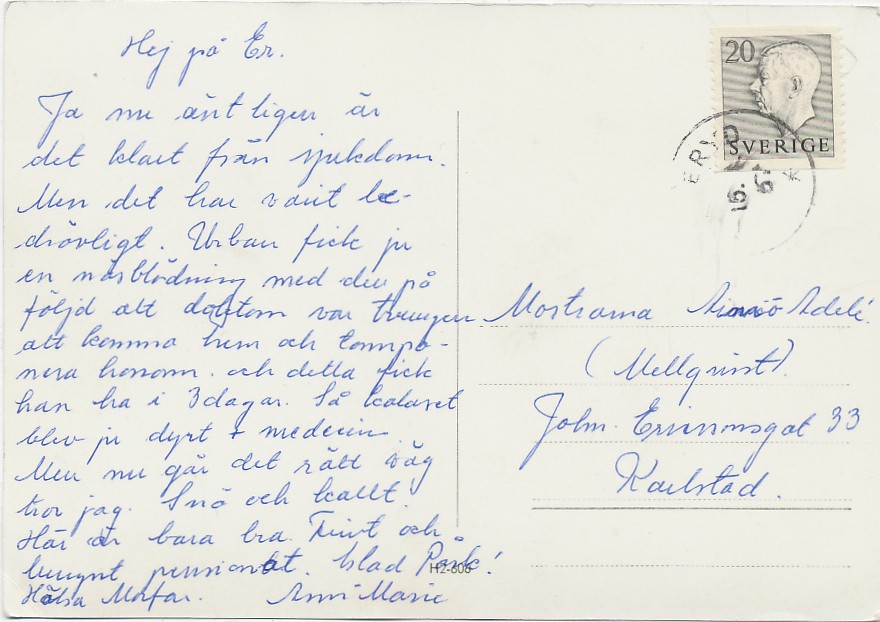 Hej på Er.
Ja nu äntligen är
det klart från sjukdom.
Men det har varit be-
drövligt. Urban fick ju
en näsblödning med den på
följd att doktorn var tvungen
att komma hem och tampo-
nera honom. och detta fick
han ha i 3 dagar. Så kalaset
blev ju dyrt + medecin
Men nu går det rätt väg
tror jag. Snö och kallt.
Här är bara bra. Fint och
lugnt pensionat. Glad Påsk!
Hälsa Morfar. Ann Marie
20
SVERIGE
ERYD
15.
K
Mostrarna Adelé.
(Mellqvist).
John Ericsonsgat 33
Karlstad.
H2-808